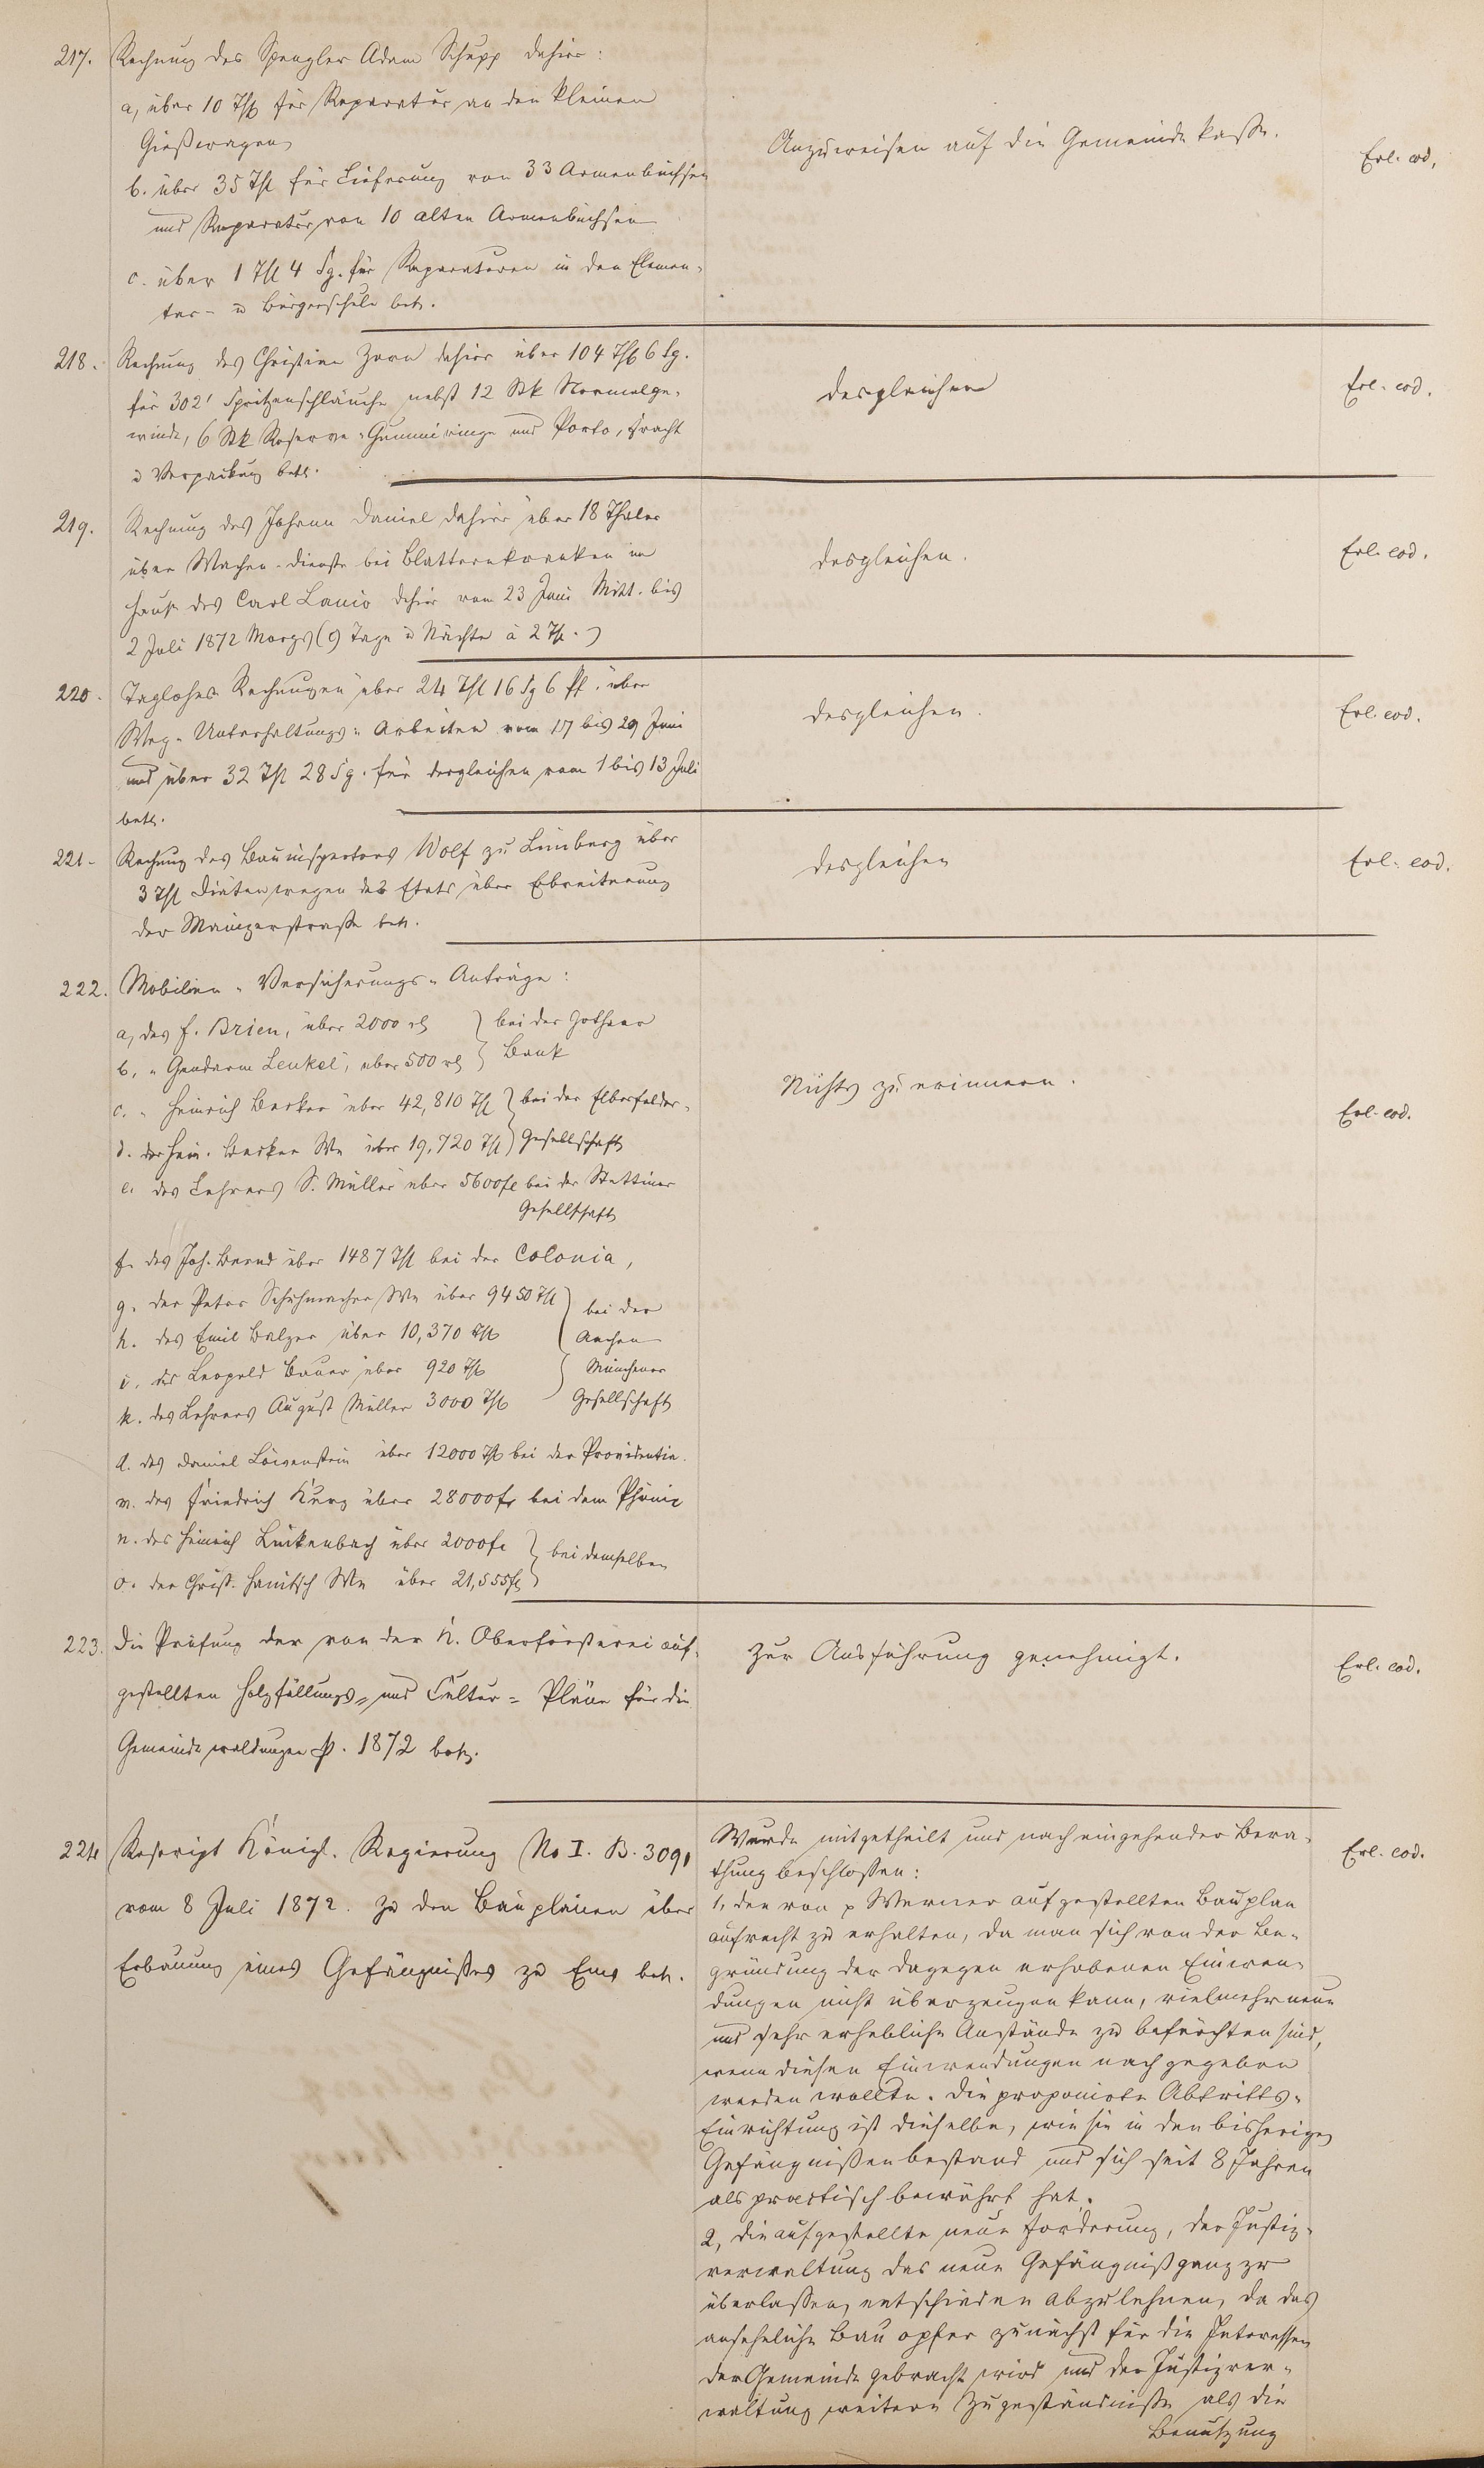 217. Rechnung des Spengler Adam Schupp dahier:
a, über 10 Thl für Reparatur an den kleinen
Gießwagen
b. über 35 Thl für Lieferung von 33 Armenbüchsen
und Reparatur von 10 alten Armenbüchsen
c. über 1 Thl 4 Sg. für Reparaturen in den Elemen-
tar- u Bürgerschule betr.
Anzuweisen auf die Gemeindekasse.
Erl. eod.
218. Rechnung des Christian Zorn dahier über 104 Thl 6 Sg.
für 302' Spritzenschläuche nebst 12 Stk Normalge-
winde, 6 Stk Reserve-Gummiringe und Porto, Fracht
u Verpackung betr.
desgleichen
Erl. eod.
219. Rechnung des Johann Daniel dahier über 18 Thaler
über Wachen-dienste bei Blatternkranken im
Hause des Carl Lanio dahier vom 23 Juni Mitt. bis
2 Juli 1872 Morgs (9 Tage u Nächte à 2 Th.)
desgleichen.
Erl. eod.
220. Taglohns Rechnungen über 24 Thl 16 Sg 6 Pf. über
Weg-Unterhaltungs-Arbeiten vom 17 bis 29 Juni
und über 32 Thl 28 Sg. für dergleichen vom 1 bis 13 Juli
betr.
desgleichen.
Erl. eod.
221- Rechnung des Bauinspectors Wolf zu Limburg über
3 Thl Diäten wegen des Etats über Erbreiterung
der Mainzerstraße betr.
desgleichen
Erl. eod.
222. Mobilien-Versicherungs-Anträge:
a, des F. Brien, über 2000 rl } bei der Gothaer
b. " Gendarm Leukel, über 500 rl } Bank
c. " Heinrich Becker über 42,810 Thl } bei der Elberfelder-
d. der Hein. Becker We über 19,720 Thl } Gesellschaft
e. des Lehrers S. Müller über 5600 fl bei der Stettiner
Gesellschaft
f. des Joh. Bernd über 1487 Thl bei der Colonia,
g. der Peter Schuhmacher We über 9450 Thl } bei der
h. des Emil Balzer über 10,370 Thl Aachen
i. des Leopold Bauer über 920 Thl } Münchener
k. des Lehrers August Müller 3000 Thl Gesellschaft
l. des Daniel Löwenstein über 12000 Thl bei der Providentia.
m. des Friedrich Kurz über 28000 fr bei dem Phönix
n. des Heinrich Lückenbach über 2000 fr } bei demselben
o. der Christ. Hanitsch We über 21,555 fl }
Nichts zu erinnern.
Erl. eod.
223. Die Prüfung der von der K. Oberförsterei auf-
gestellten Holzfällungs- und Cultur- Pläne für die
Gemeindewaldungen p. 1872 betr.
Zur Ausführung genehmigt.
Erl. eod.
224 Rescript Königl. Regierung No I. B. 3091
vom 8 Juli 1872. zu den Bauplänen über
Erbauung eines Gefängnißes zu Ems betr.
Wurde mitgetheilt und nach eingehender Bera-
thung beschloßen:
1, den von p Werner aufgestellten Bauplan
aufrecht zu erhalten, da man sich von der Be-
gründung der dagegen erhobenen Einwen-
dungen nicht überzeugen kann, vielmehr neue
und sehr erhebliche Anstände zu befürchten sind,
wenn diesen Einwendungen nachgegeben
werden wollte. Die proponirte Abtritts-
Einrichtung ist dieselbe, wie sie in den bisherigen
Gefängnißen bestand und sich seit 8 Jahren
als practisch bewährt hat.
2, die aufgestellte neue Forderung, der Justiz-
verwaltung das neue Gefängniß ganz zu
überlaßen, entschieden abzulehnen, da das
ansehnliche Bauopfer zunächst für die Interessen
der Gemeinde gebracht wird und der Justizver-
waltung weitere Zugeständniße als die
Benützung
Erl. eod.